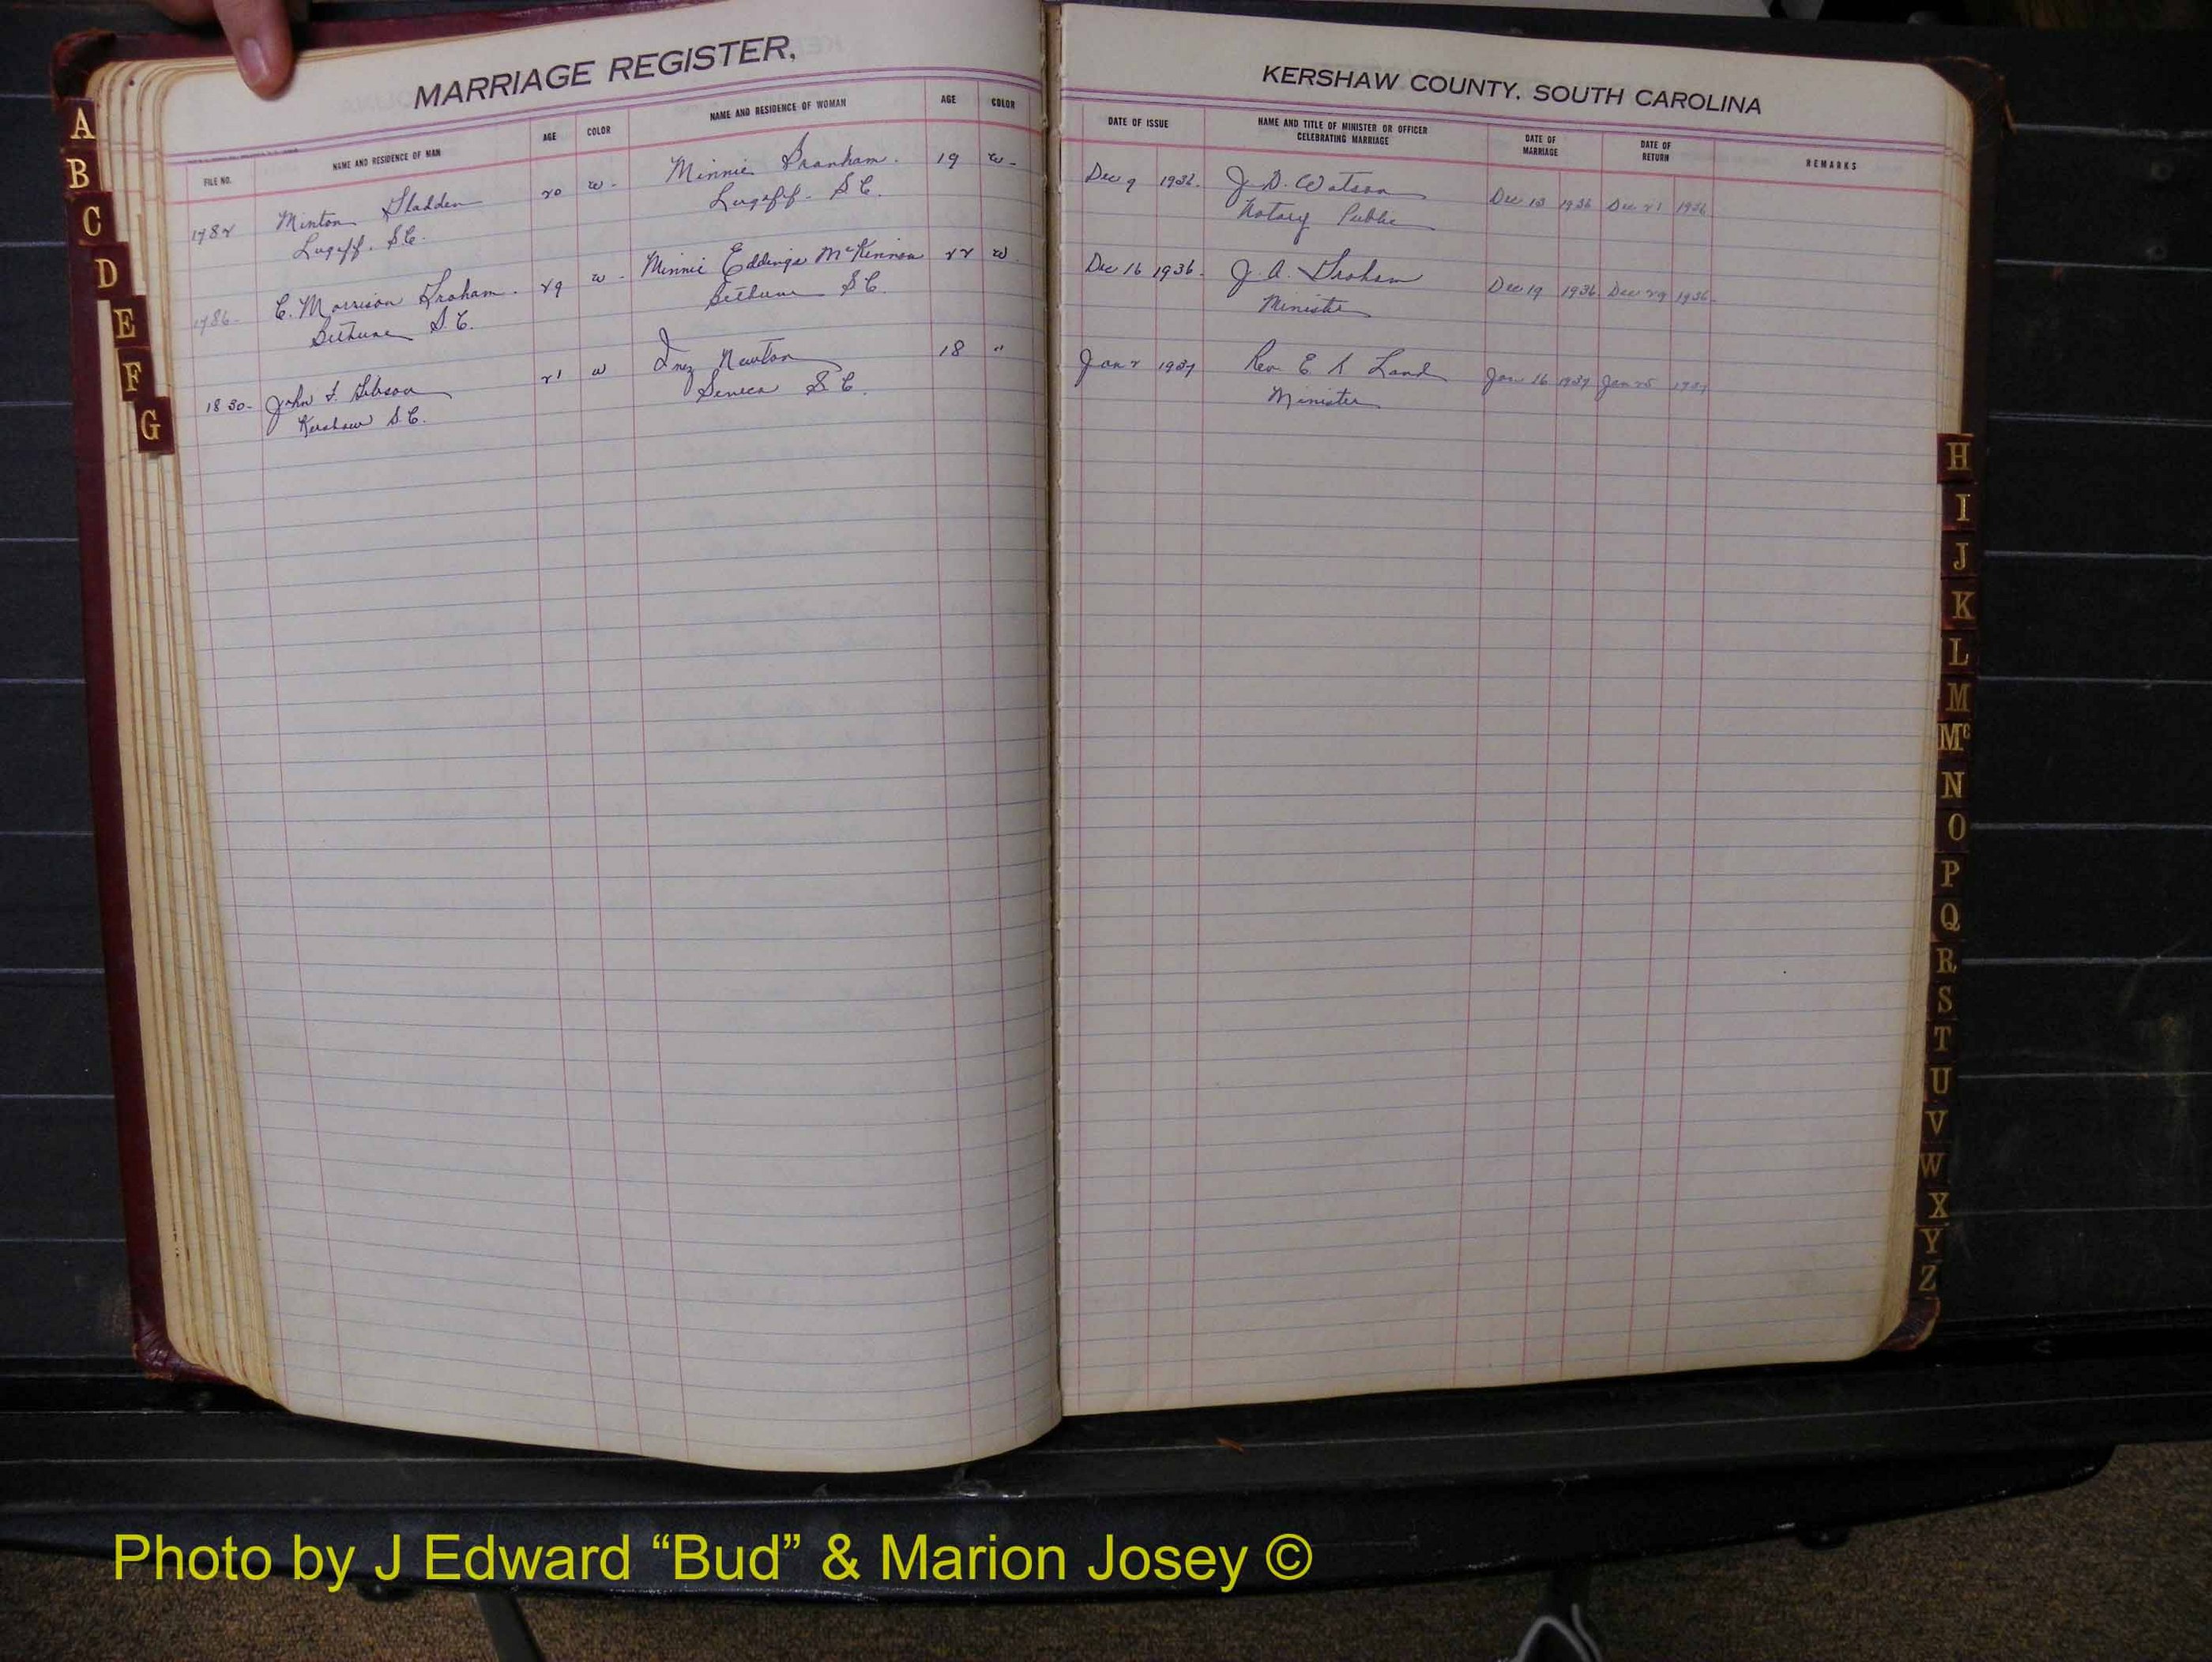 MARRIAGE REGISTER,
FILE NO. NAME AND RESIDENCE OF MAN AGE COLOR NAME AND RESIDENCE OF WOMAN AGE COLOR
1782 Minton Gladden 20 w- Minnie Branham. 19 w-
Lugoff. S.C. Lugoff. S.C.
1786- C. Morrison Graham. 29 w- Minnie Eddings McKinnon 22 w
Bethune S.C. Bethune S.C.
1830- John F. Gibson 21 w Inez Newton 18 "
Kershaw S.C. Seneca S.C.
KERSHAW COUNTY. SOUTH CAROLINA
DATE OF ISSUE NAME AND TITLE OF MINISTER OR OFFICER CELEBRATING MARRIAGE DATE OF MARRIAGE DATE OF RETURN REMARKS
Dec 9 1936. J. D. Watson Dec 13 1936 Dec 21 1936
Notary Public
Dec 16 1936- J. A. Graham Dec 19 1936 Dec 29 1936-
Minister
Jan 2 1937 Rev E S Land Jan 16 1937 Jan 25 1937
Minister
A
B
C
D
E
F
G
H
I
J
K
L
M
Mc
N
O
P
Q
R
S
T
U
V
W
X
Y
Z
Photo by J Edward “Bud” & Marion Josey ©